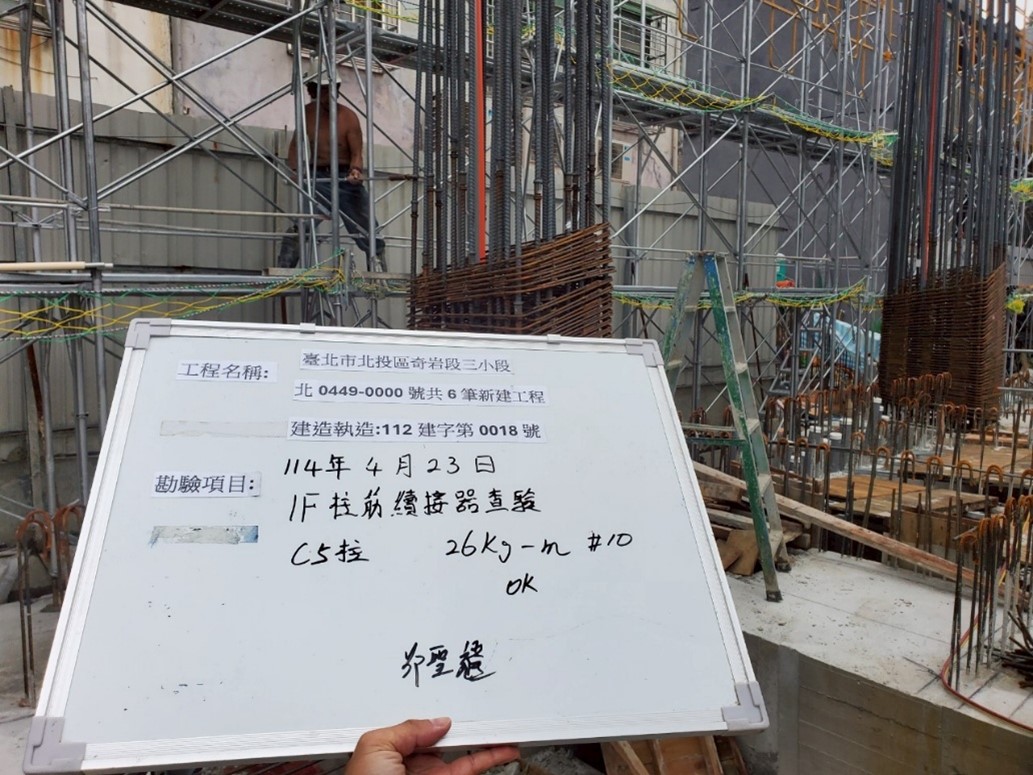 工程名稱:
臺北市北投區奇岩段三小段
北 0449-0000 號共 6 筆新建工程
建造執造:112 建字第 0018 號
勘驗項目:
114年 4月 23日
1F 柱筋續接器查驗
C5柱 26kg-m #10
OK